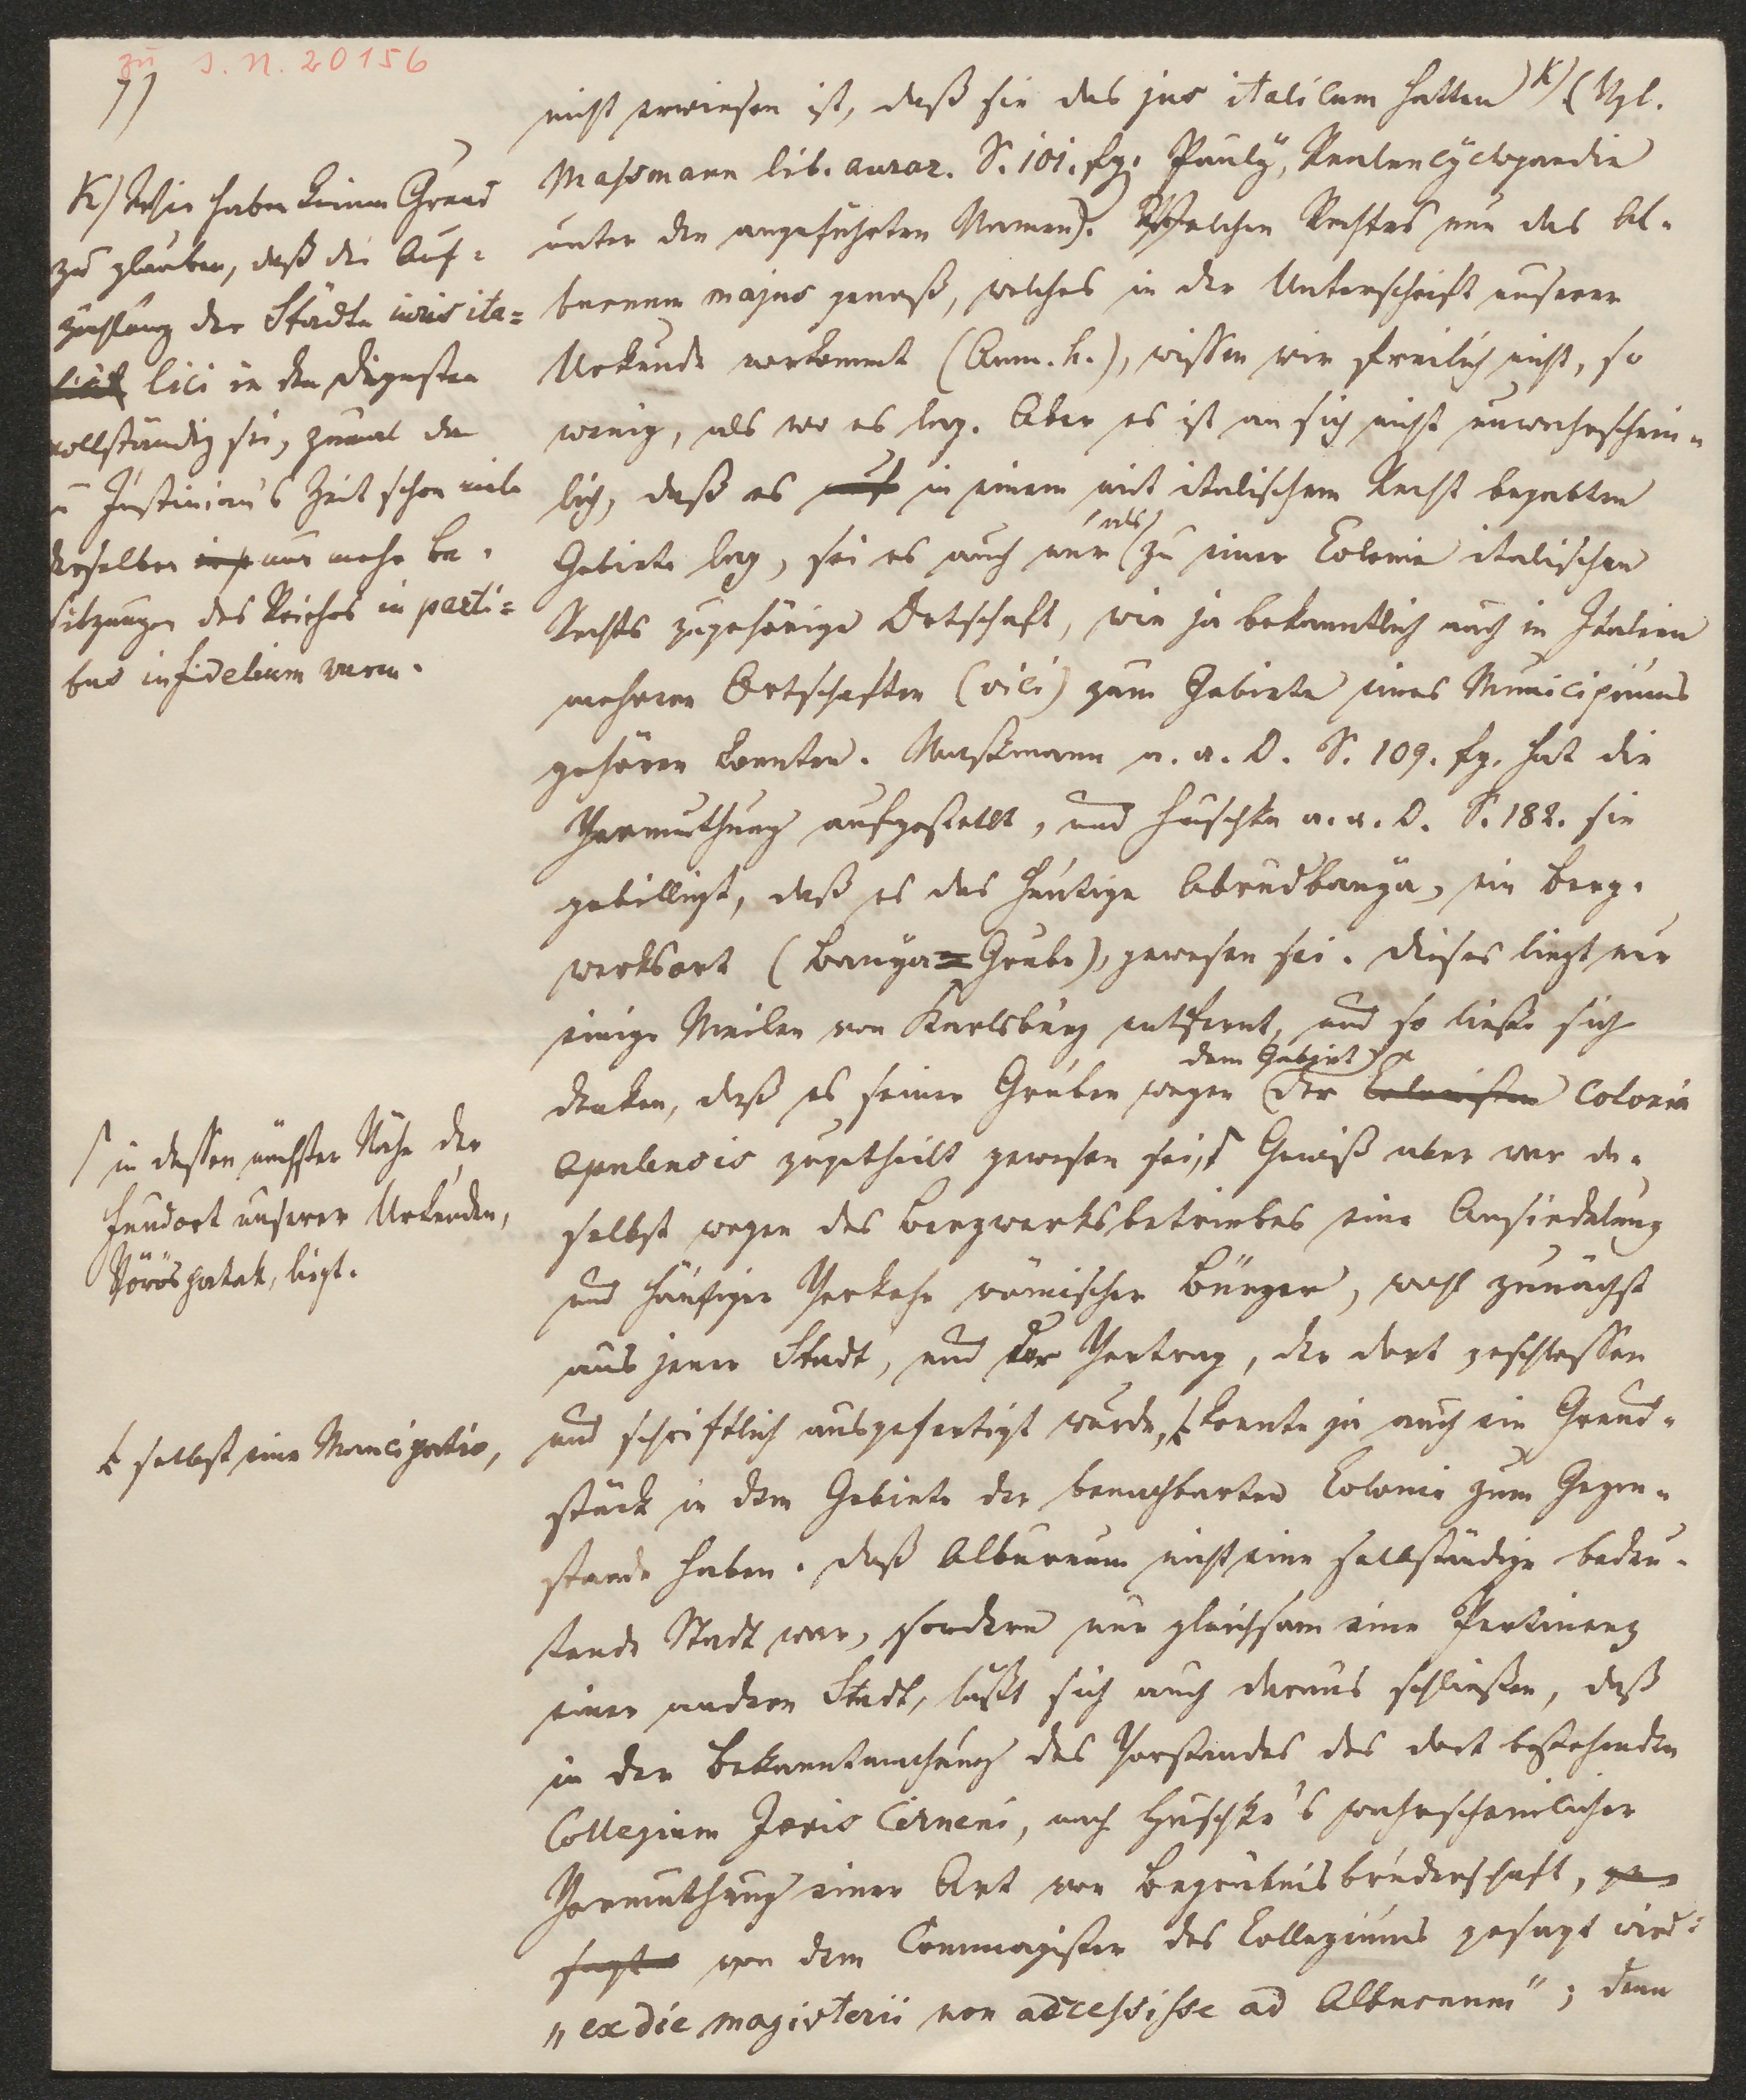 zu I. N. 20156
7)
nicht erwiesen ist, daß sie das jus italicum hatten K) (Vgl.
Maßmann lib. aurar. S. 101. fg. Pauly, Realencyclopaedie
unter den angeführten Namen). Welchen Rechtes nun das Al-
burnum majus genoß, welches in der Unterschrift unserer
Urkunde vorkommt (Anm. h.), wissen wir freilich nicht, so
wenig, als wo es lag. Aber es ist an sich nicht unwahrschein-
lich, daß es auf in einem mit italischem Recht begabten
Gebiete lag, sei es auch nur (als) zu einer Colonie italischen
Rechts zugehörige Ortschaft, wie ja bekanntlich auch in Italien
mehrere Ortschaften (vici) zum Gebiete eines Municipiums
gehören konnten. Maßmann a. a. O. S. 109. fg. hat die
Vermuthung aufgestellt, und Huschke a. a. O. S. 182. sie
gebilligt, daß es das heutige Abrudbanya, ein Berg-
werksort (Banya = Grube), gewesen sei. Dieses liegt nur
einige Meilen von Karlsburg entfernt, und so ließe sich
denken, daß es seiner Gruben wegen dem Gebiete der Colonisten Colonia
Apulensis zugetheilt gewesen sei, ſ Gewiß aber war da-
selbst wegen des Bergwerksbetriebes eine Ansiedelung
und häufiger Verkehr römischer Bürger, wohl zunächst
aus jener Stadt, und der Vertrag, der dort geschlossen
und schriftlich ausgefertigt wurde, ₺ konnte ja auch ein Grund-
stück in dem Gebiete der benachbarten Colonie zum Gegen-
stande haben. Daß Alburnum nicht eine selbständige bedeu-
tende Stadt war, sondern nur gleichsam eine Pertinenz
einer andern Stadt, läßt sich auch daraus schließen, daß
in der Bekanntmachung des Vorstandes des dort bestehenden
Collegium Jovis Cerneni, nach Huschke's wahrscheinlicher
Vermuthung einer Art von Begräbnisbrüderschaft, ge-
sagt von dem Commagister des Collegiums gesagt wird:
„ex die magisterii non accessisse ad Alburnum"; denn
K) Wir haben keinen Grund
zu glauben, daß die Auf-
zählung der Städte iuris ita-
lici in den Digesten
vollständig sei, zumal da
zu Justinian's Zeit schon viele
derselben nur mehr Be-
sitzungen des Reiches in parti-
bus infidelium waren.
ſ in dessen nächster Nähe der
Fundort unserer Urkunden,
Vöröspatak, liegt.
₺ selbst eine Mancipatio,